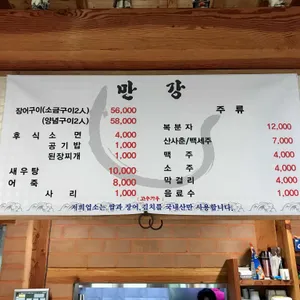 만 강
장어구이(소금구이2人) 56,000
(양념구이2人) 58,000
후 식 소 면 4,000
공 기 밥 1,000
된장찌개 1,000
새 우 탕 10,000
어 죽 8,000
사 리 1,000
주 류
복 분 자 12,000
산사춘/백세주 7,000
맥 주 4,000
소 주 4,000
막 걸 리 4,000
음 료 수 1,000
저희업소는 쌀과 장어, 김치를 국내산만 사용합니다.